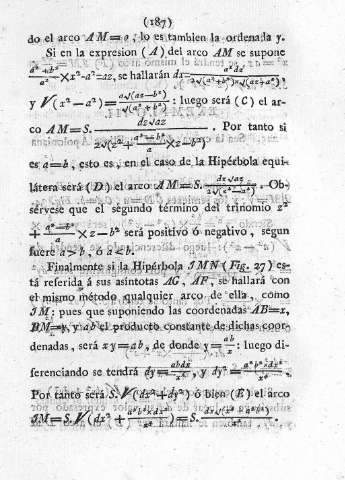 (187)
do el arco AM=0, lo es tambien la ordenada y.
Si en la expresion (A) del arco AM se supone
(a²+b²)/a² × x²-a²=az, se hallarán dx=a²dz/(2√(a²+b²)×√(az+a²)),
y √(x²-a²)=a√(az-b²)/√(a²+b²): luego será (C) el ar-
co AM=S. dz√az/(2√(z²+(a²-b²)/a × z-b²)). Por tanto si
es a=b, esto es, en el caso de la Hipérbola equi-
látera será (D) el arco AM=S. dz√az/(2√(z²-a²)). Ob-
sérvese que el segundo término del trinomio z²
+(a²-b²)/a × z-b² será positivo ó negativo, segun
fuere a>b, ó a<b.
Finalmente si la Hipérbola JMN (Fig. 27) es-
tá referida á sus asíntotas AG, AF, se hallará con
el mismo método qualquier arco de ella, como
JM: pues que suponiendo las coordenadas AB=x,
BM=y, y ab el producto constante de dichas coor-
denadas, será xy=ab, de donde y=ab/x: luego di-
ferenciando se tendrá dy=-abdx/x², y dy²=a²b²dx²/x⁴.
Por tanto será S.√(dx²+dy²) ó bien (E) el arco
JM=S.√(dx²+a²b²dx²/x⁴)=S. dx√(x⁴+a²b²)/x².